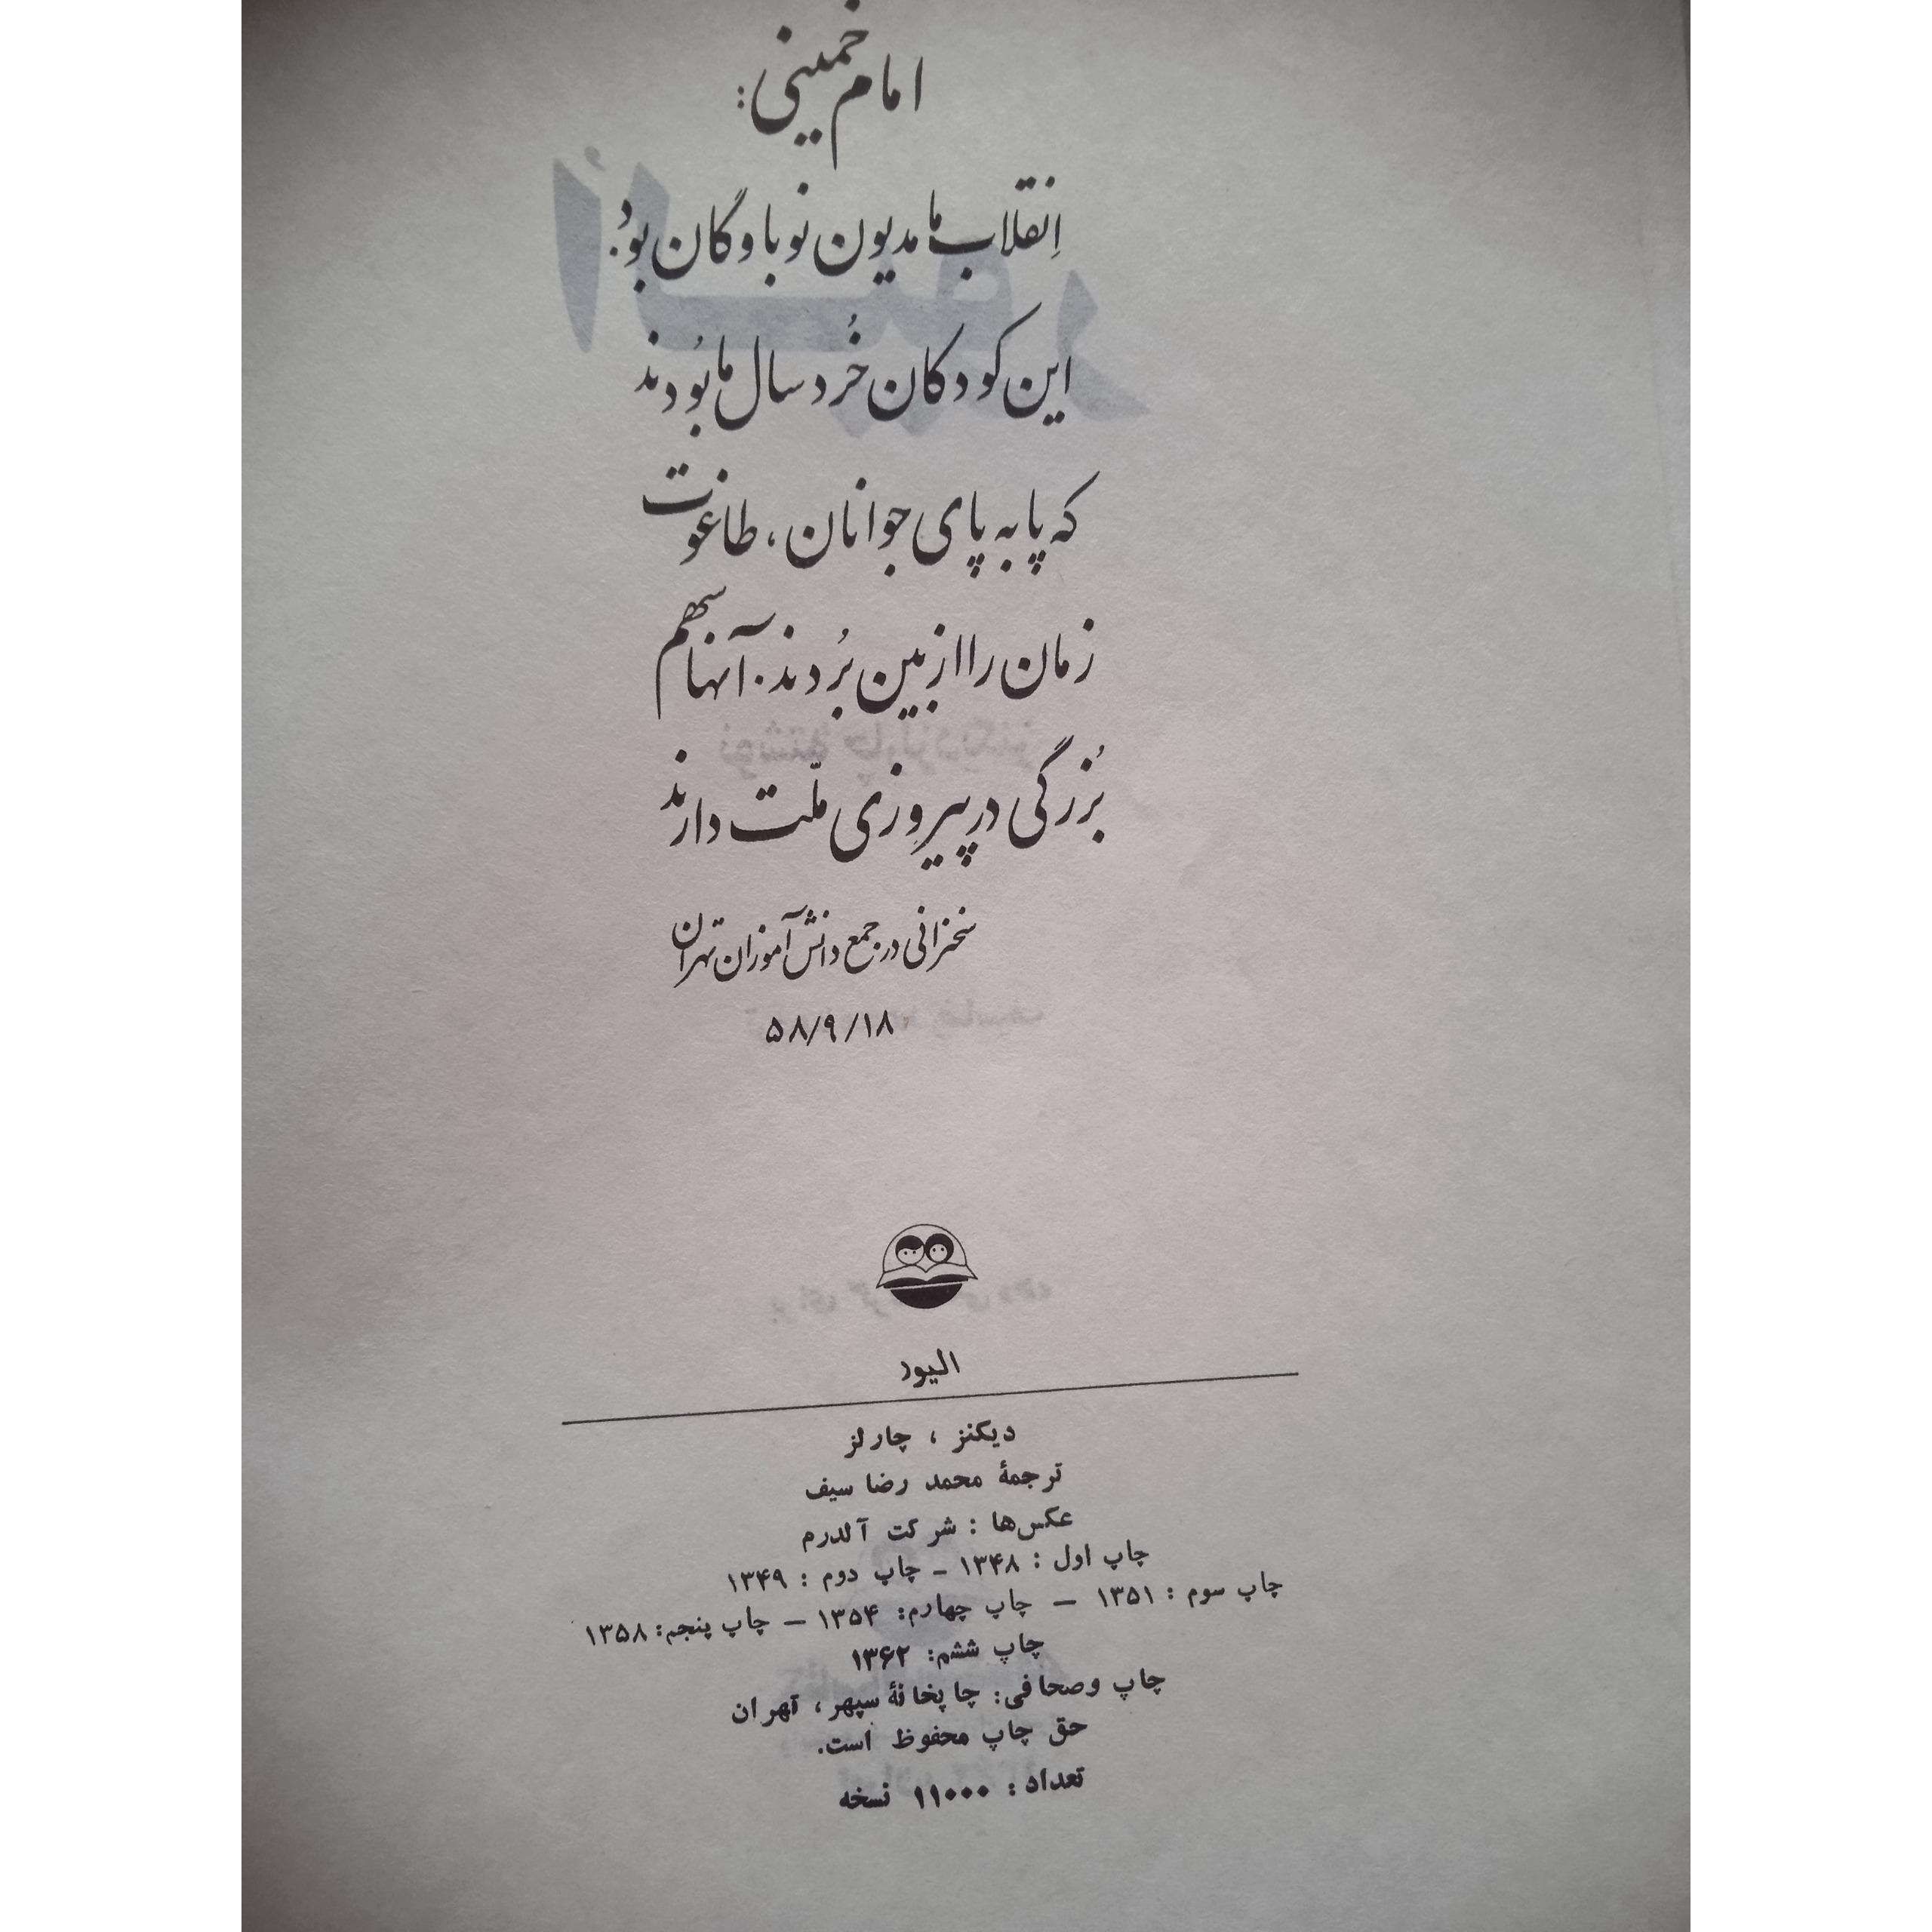 امام خمینی:
انقلاب ما مدیون نوباوگان بود.
این کودکان خُردسال ما بُودند
که پا به پای جوانان، طاغوت
زمان را از بین بُردند. آنها سهم
بُزرگی در پیروزی ملّت دارند
سخنرانی در جمع دانش‌آموزان تهران
۵۸/۹/۱۸
الیور
دیکنز ، چارلز
ترجمهٔ محمد رضا سیف
عکس‌ها : شرکت آلدرم
چاپ اول : ۱۳۴۸ ـ چاپ دوم : ۱۳۴۹
چاپ سوم : ۱۳۵۱ — چاپ چهارم: ۱۳۵۴ — چاپ پنجم: ۱۳۵۸
چاپ ششم: ۱۳۶۲
چاپ وصحافی: چاپخانهٔ سپهر، تهران
حق چاپ محفوظ است.
تعداد: ۱۱۰۰۰ نسخه